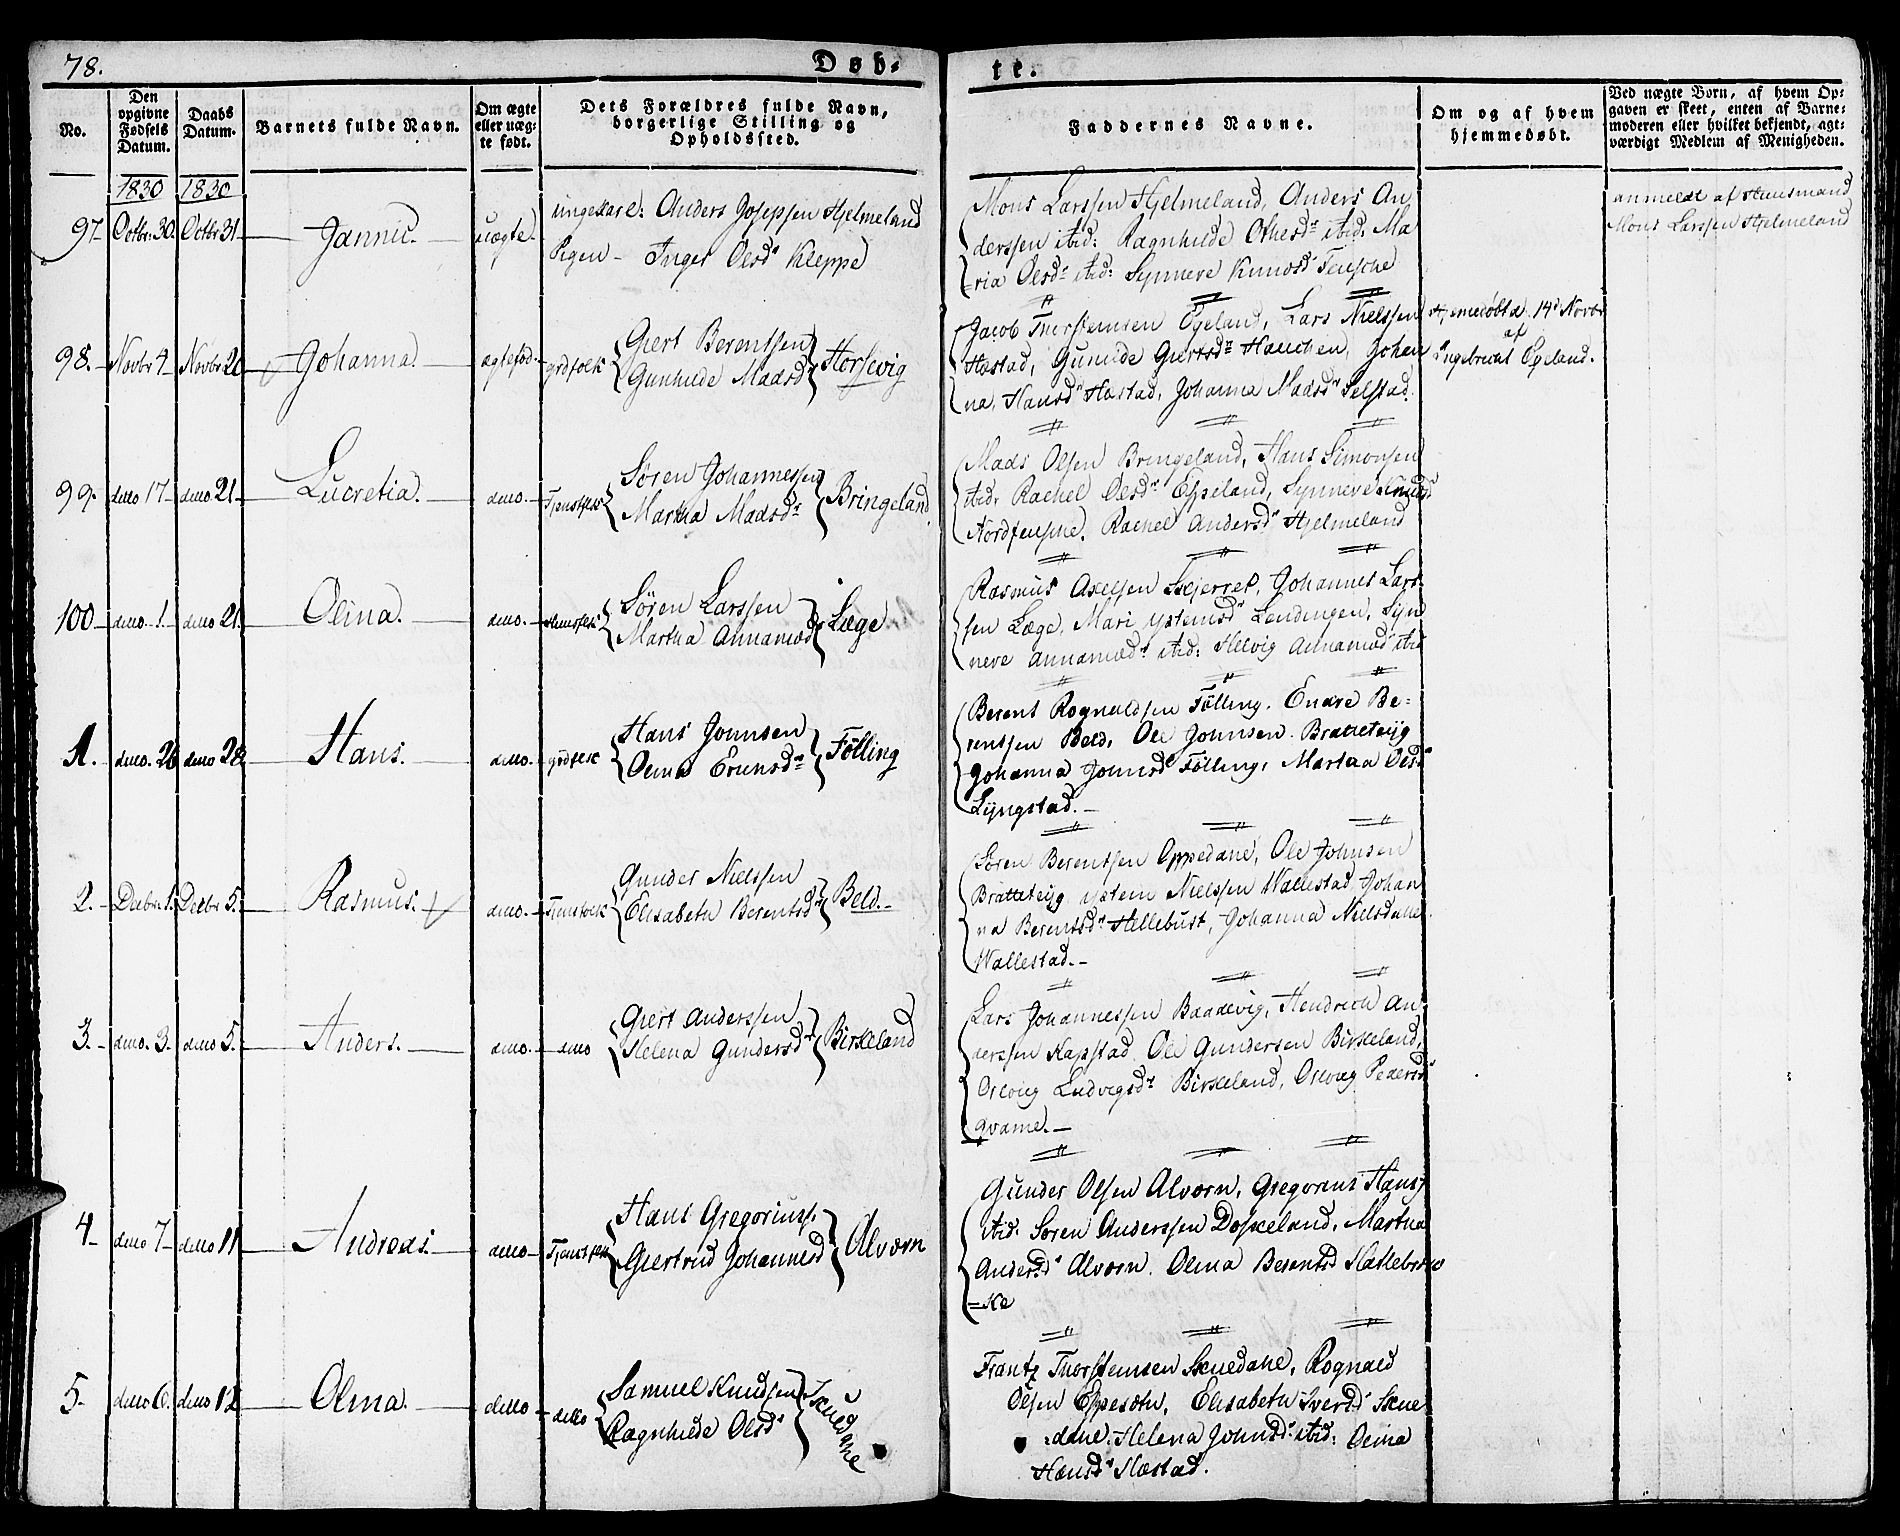 78.
Døb-
te.
No.
Den opgivne Fødsels Datum.
Daabs Datum.
Barnets fulde Navn.
Om ægte eller uæg-te født.
Dets Forældres fulde Navn, borgerlige Stilling og Opholdssted.
Faddernes Navne.
Om og af hvem hjemmedøbt.
Ved uægte Børn, af hvem Op-gaven er skeet, enten af Barne-moderen eller hvilket bekjendt, agt-værdigt Medlem af Menigheden.
1830 1830
97. Octbr. 30. Octbr 31. Jannic. uægte.
ungekarl: Anders Josepsen Hjelmeland
Pigen - Inger Olsdr Kleppe
Mons Larssen Hjelmeland, Anders An-
derssen ibid: Ragnhilde Othesdr ibid: Ma
=ria Olsdr ibid: Synneve Knudsdr
anmeldt af Huusmand
Mons Larssen Hjelmeland
98. Novbr 4 Novbr 20 Johanna. ægtefød. grdfolk
Giert Berentsen
Gunhilde Madsdr
Horsevig
Jacob Thorsteinsen Egeland, Lars Nielssen
Hæstad, Gunilde Giertsdr Hauchen, Johan
na Hansdr Hæstad, Johanna Madsdr Selstad.
Hjemedøbt d. 14d Novbr
af
Ingebricht Egeland.
99. detto 17 detto 21. Lucretia. detto. Tjenstfolk
Søren Johannessen
Martha Madsdr
Bringeland
Mads Olsen Bringeland, Hans Simonsen
ibid: Rachel Olsdr Espeland, Synneve Knudsd
Rachel Andersdr Hjelmeland
100 detto 1. detto 21. Olina. detto. Huusfolk
Søren Larssen
Martha Annamdr
Læge
Rasmus Axelsen Skjerret, Johannes Lars
sen Læge, Mari ystensdr Lendingen, Syn
neve Annamdr ibid: Helvig Annamdr ibid
1. detto. 26 detto 28 Hans. detto. grdfolk
Hans Johnsen
Olina Erimsdr
Følling
Berent Rognaldsen Følling. Endre Be-
rentsen Beld, Ole Johnsen Bratteteiig
Johanna Johnsdr Følling, Martha Olsdr
Lyngstad.
2. Decbr 1. Decbr 5. Rasmus. detto. Tjenstfolk
Gunder Nielssen
Elisabeth Berentsdr
Beld.
Søren Berentsen Eppedahl, Ole Johnsen
Bratteteiig, ystein Nielssen Wallestad, Johan
na Berentsdr Hellebust, Johanna Nielsdatter
Wallestad.
3. detto. 3. detto 5. Anders. detto. detto
Giert Anderssen
Helena Gundersdr
Birkeland
Lars Johannessen Baadevig, Hendrich An-
derssen Hapstad, Ole Gundersen Birkeland,
Ludvigsdr Birkeland, Pedersdr
qvame.
4. detto 7 detto 11 Andreas. detto Tjenstfolk
Hans Gregoriuss.
Giertrud Johannesdr
Alværn
Gunder Olsen Alværn, Gregorius Hanss
ibid. Søren Anderssen Doskeland, Martha
Andersdr Alværn. Olina Berentsd Hatlebræ
=ke
5. detto 6. detto 12 Olina. detto detto
Samuel Knudsen
Ragnhilde Olsdr
Skuedahle
Frantz Thorsteinsen Skuedahle, Rognald
Olsen Espesætn, Elisabeth Iversdr Skue
dahle. Helena Johnsdr ibid: Olina
Hansdr Hæstad.